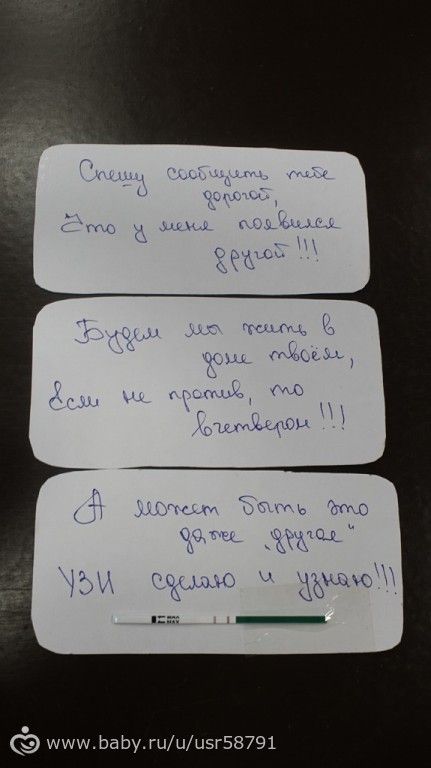 Спешу сообщить тебе
дорогой,
Что у меня появился
другой!!!
Будем мы жить в
доме твоём,
Если не против, то
вчетвером!!!
А может быть это
даже „другая"
УЗИ сделаю и узнаю!!!
www.baby.ru/u/usr58791